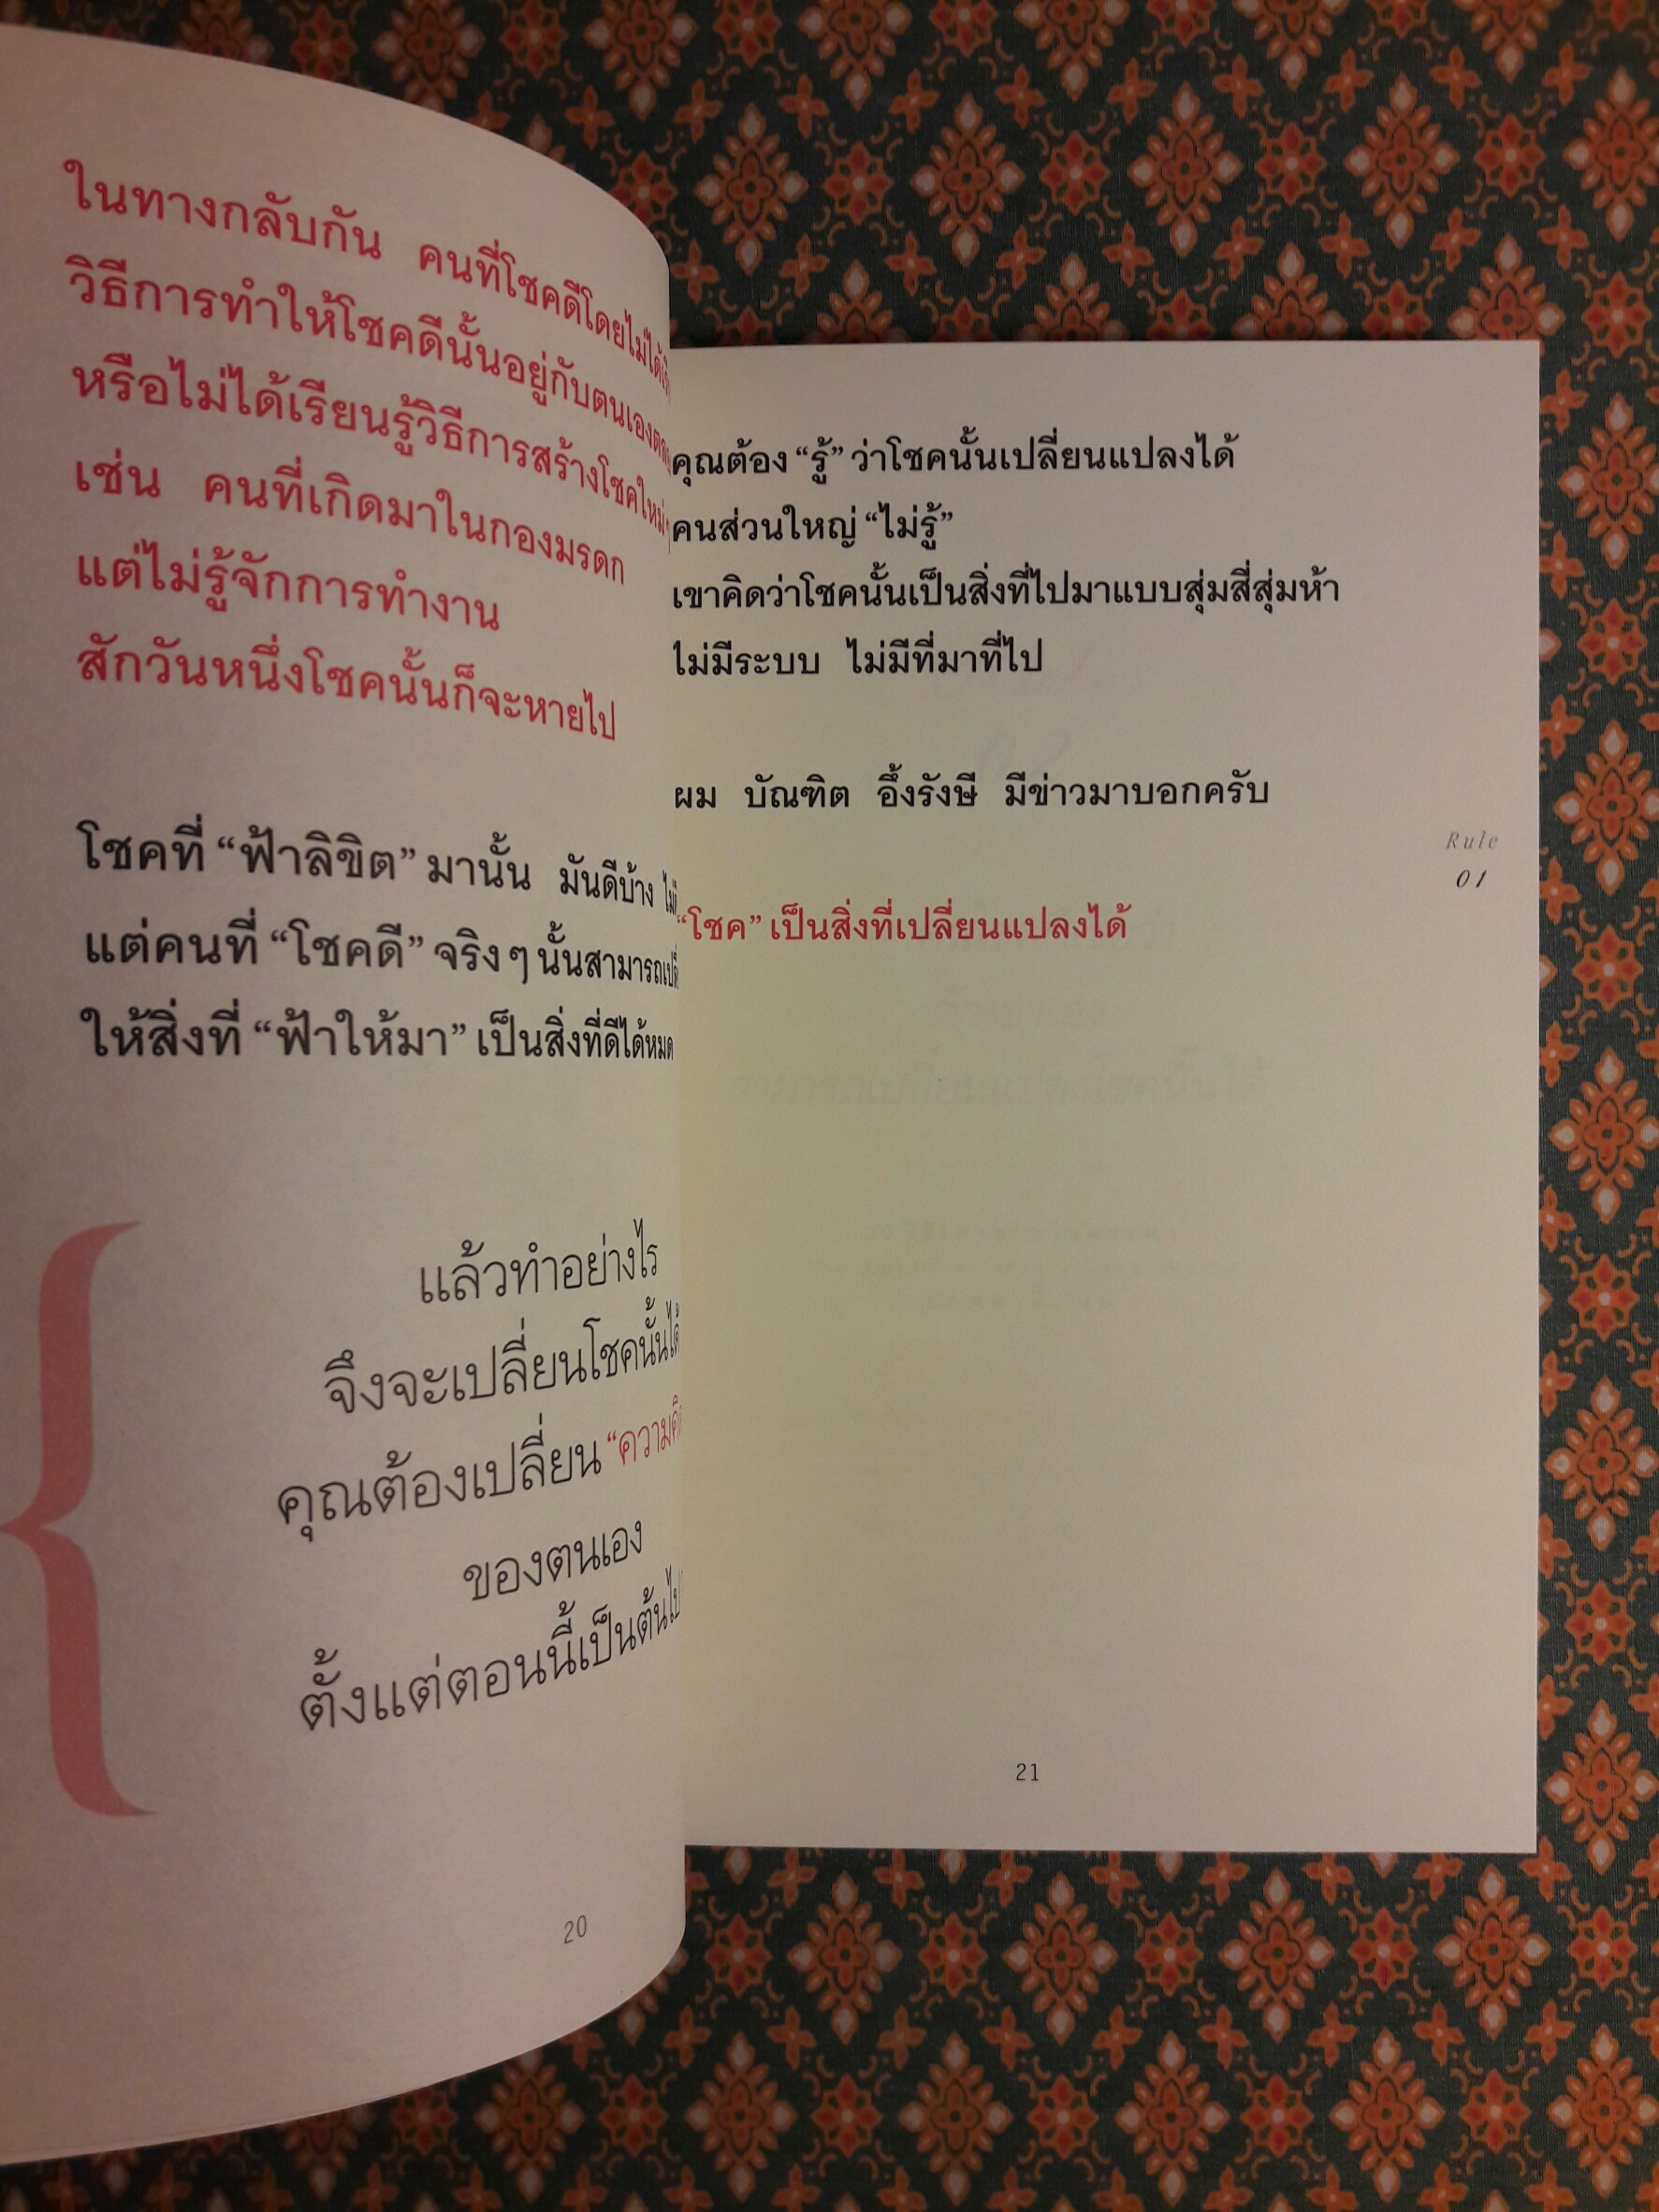 ในทางกลับกัน คนที่โชคดีโดยไม่ได้
วิธีการทำให้โชคดีนั้นอยู่กับตนเอง
หรือไม่ได้เรียนรู้วิธีการสร้างโชคใหม่
เช่น คนที่เกิดมาในกองมรดก
แต่ไม่รู้จักการทำงาน
สักวันหนึ่งโชคนั้นก็จะหายไป
โชคที่ “ฟ้าลิขิต” มานั้น มันดีบ้าง
แต่คนที่ “โชคดี” จริงๆ นั้นสามารถ
ให้สิ่งที่ “ฟ้าให้มา” เป็นสิ่งที่ดีได้หมด
แล้วทำอย่างไร
จึงจะเปลี่ยนโชคนั้นได้
คุณต้องเปลี่ยน
ของตนเอง
ตั้งแต่ตอนนี้เป็นต้นไป
20
คุณต้อง “รู้” ว่าโชคนั้นเปลี่ยนแปลงได้
คนส่วนใหญ่ “ไม่รู้”
เขาคิดว่าโชคนั้นเป็นสิ่งที่ไปมาแบบสุ่มสี่สุ่มห้า
ไม่มีระบบ ไม่มีที่มาที่ไป
ผม บัณฑิต อึ้งรังษี มีข่าวมาบอกครับ
“โชค” เป็นสิ่งที่เปลี่ยนแปลงได้
Rule
01
21